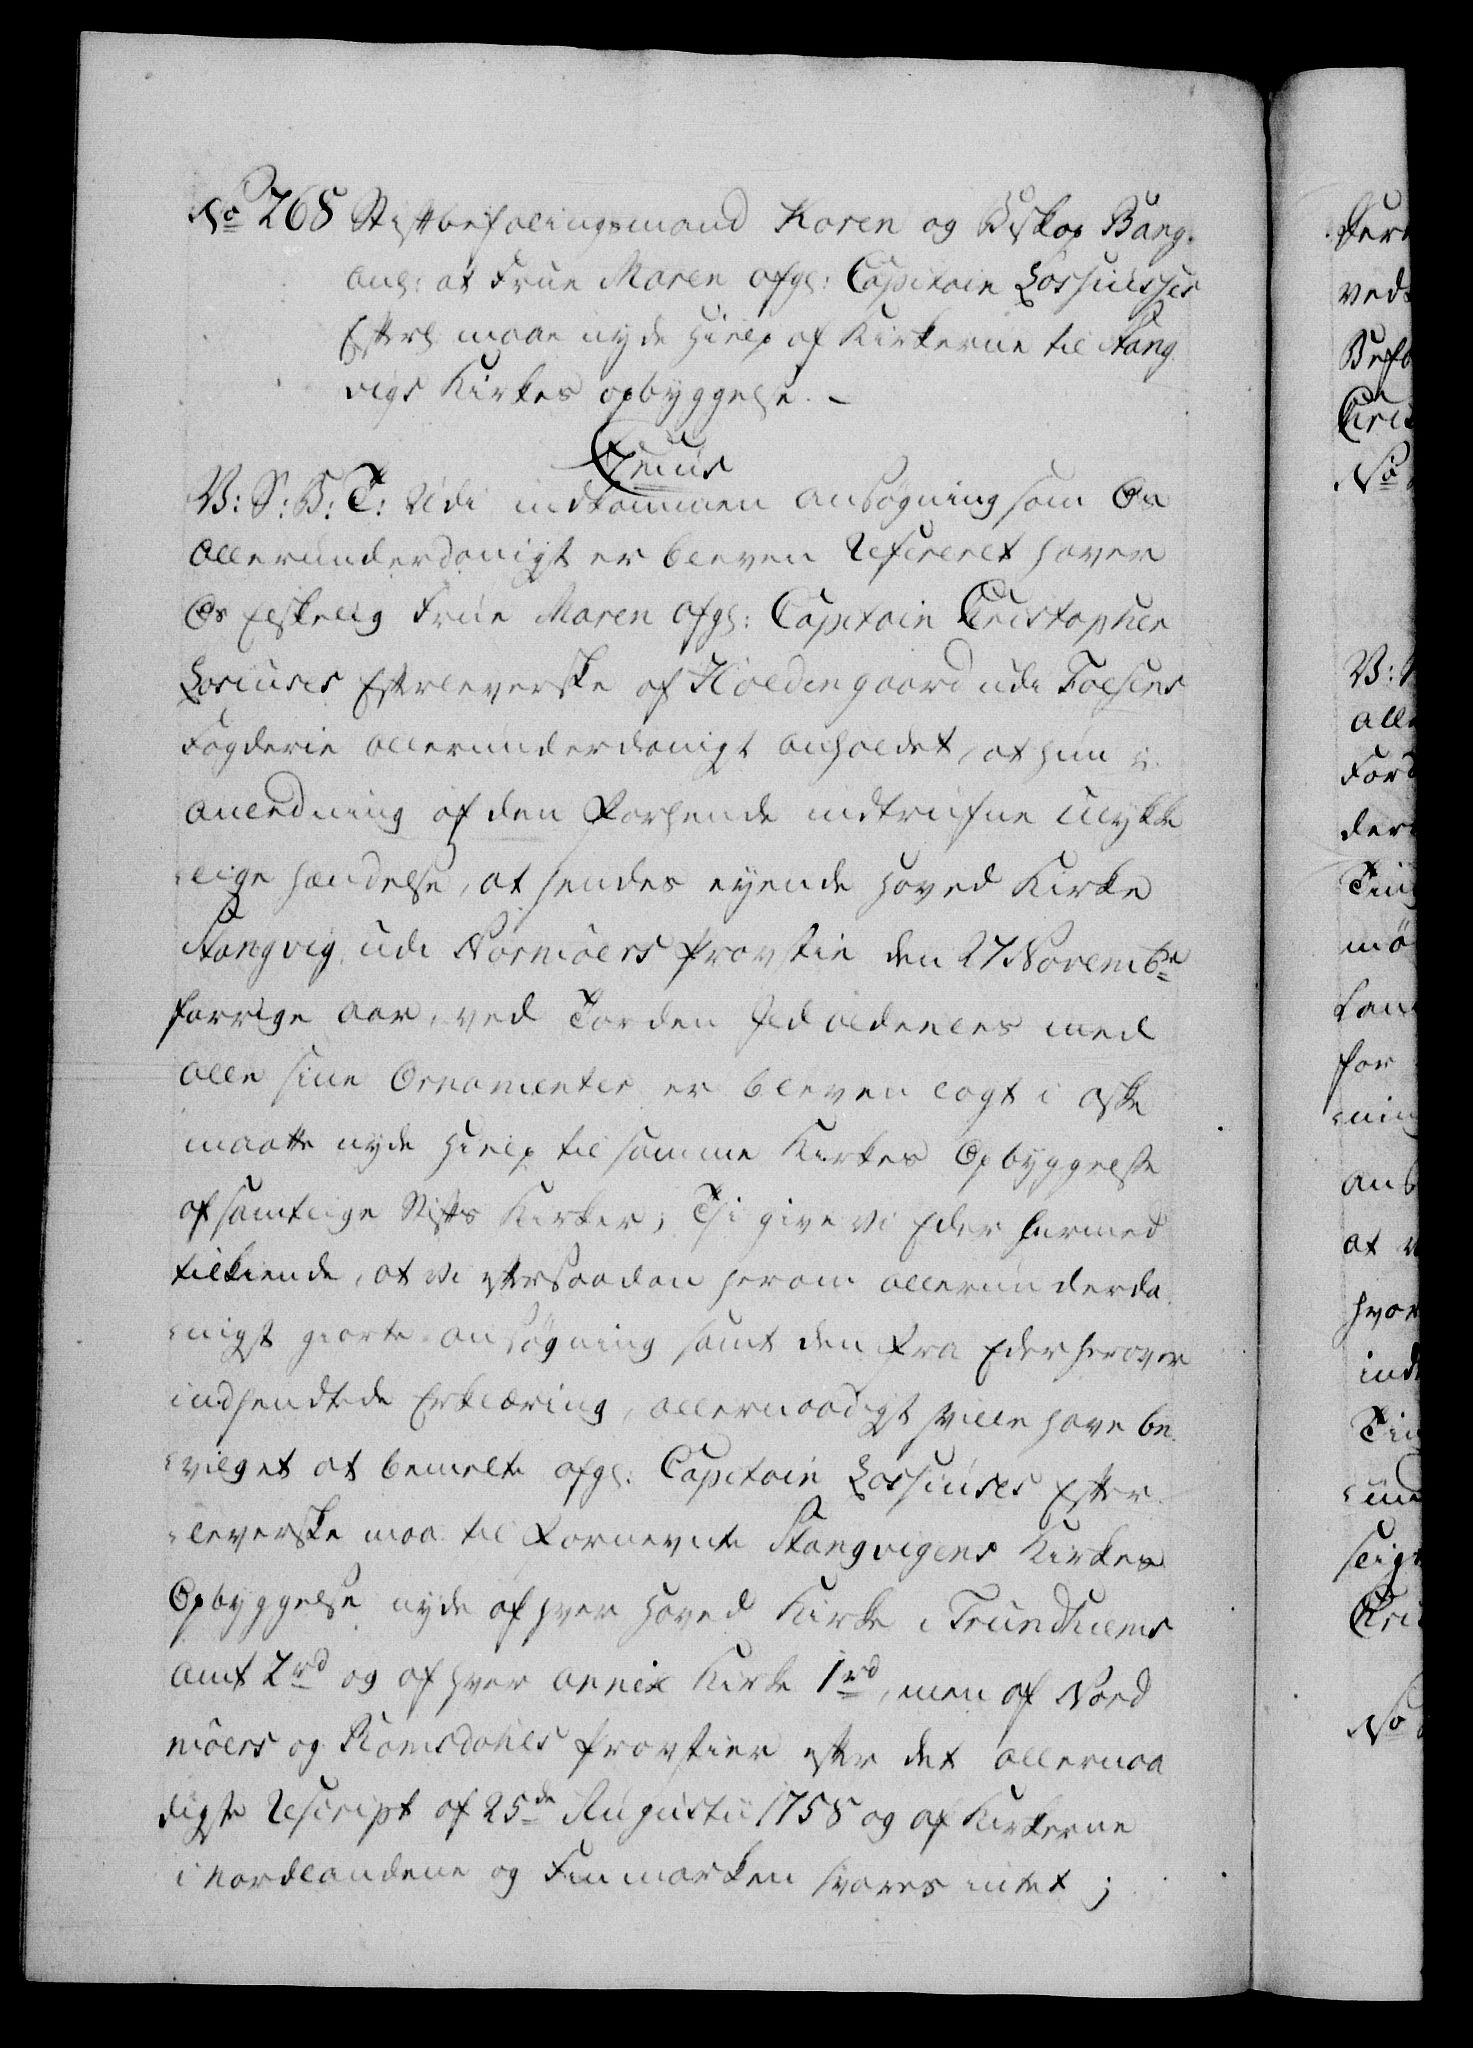 No 268 Stiftbefalingsmand Koren og Biskop Bang.
anl: at Frue Maren afgl: Capitain Lossiusses
Efterl maae nyde Hielp af Kirkerne til Stang
vigs Kirkes opbyggelse. –
V: S: B: T: Udi indkommen ansøgning som Os
allerunderdanigst er bleven Refereret haver
Os Elskelig Frue Maren afgl: Capitain Christopher
Losiuses Efterleverske af Holdengaard udi Foesens
Fogderie allerunderdanigst anholdet, at hun i
anledning af den forhende indtrufne Ulykke
lige hændelse, at hendes eyende Hoved Kirke
Stangvig, udi Normöers Provstie den 27 Novembr
forrige aar, ved Torden Ild aldeeles med
alle sine Ornamenter er bleven lagt i aske
maatte nyde Hielp til samme Kirkes Opbyggelse
af samtlige Stifts Kirker; Thi give vi Eder hermed
tilkiende, at vi efter saadan herom allerunderda
nigst giorte ansøgning samt den fra Eder herover
indhendtede Erklæring, allernaadigst ville have be
vilget at bemelte afgl: Capitain Lossiuses Efter
leverske maa til fornevnte Stangvigens Kirkes
Opbyggelse nyde af hver Hoved Kirke i Trundhiems
Amt 2 rd og af hver annex Kirke 1 rd, men af Nord
möers og Romsdahls Provstier efter det allernaa
digste Rescript af 25de Augustii 1758 og af Kirkerne
i Nordlandene og Finmarken svares intet;